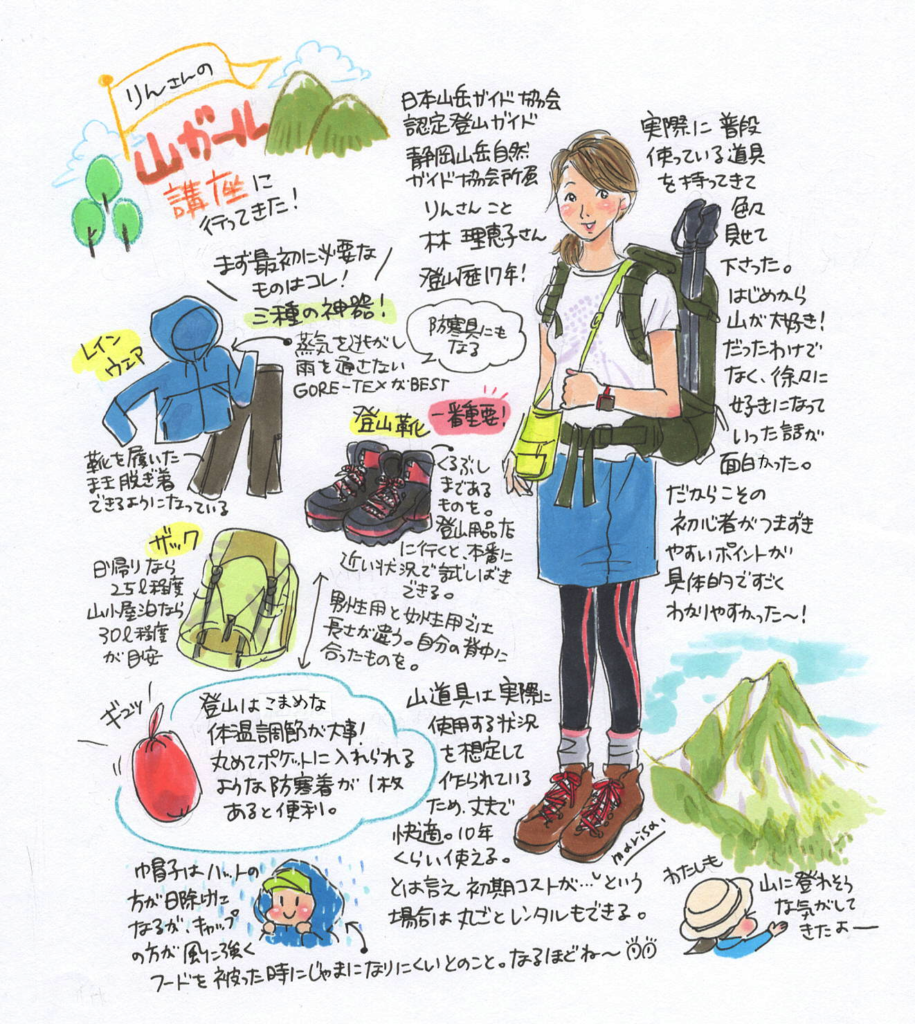 りんさんの
山ガール
講座に
行ってきた!
日本山岳ガイド協会
認定登山ガイド
静岡山岳自然
ガイド協会所属
りんさんこと
林 理恵子さん
登山歴17年!
実際に普段
使っている道具
を持ってきて
色々
見せて
下さった。
はじめから
山が大好き!
だったわけで
なく、徐々に
好きになって
いった話が
面白かった。
だからことの
初心者がつまずき
やすいポイントが
具体的ですごく
わかりやすかった〜!
まず最初に必要な
ものはコレ!
三種の神器!
レイン
ウェア
蒸気を逃がし
雨を通さない
GORE-TEXがBEST
防寒具にも
なる
靴を履いた
まま脱ぎ着
できるようになっている
登山靴
一番重要!
くるぶし
まである
ものを。
登山用品店
に行くと、本番に
近い状況で試しばき
できる。
ザック
日帰りなら
25ℓ程度
山小屋泊なら
30ℓ程度
が目安
男性用と女性用では
長さが違う。自分の背中に
合ったものを。
ギュッ
登山はこまめな
体温調節が大事!
丸めてポケットに入れられる
ような防寒着が1枚
あると便利。
山道具は実際に
使用する状況
を想定して
作られている
ため、丈夫で
快適。10年
くらい使える。
とは言え初期コストが…という
場合は丸ごとレンタルもできる。
marisa.
帽子はハットの
方が日除けに
なるが、キャップ
の方が風に強く
フードを被った時にじゃまになりにくいとのこと。なるほどね〜
わたしも
山に登れそう
な気がして
きたよー